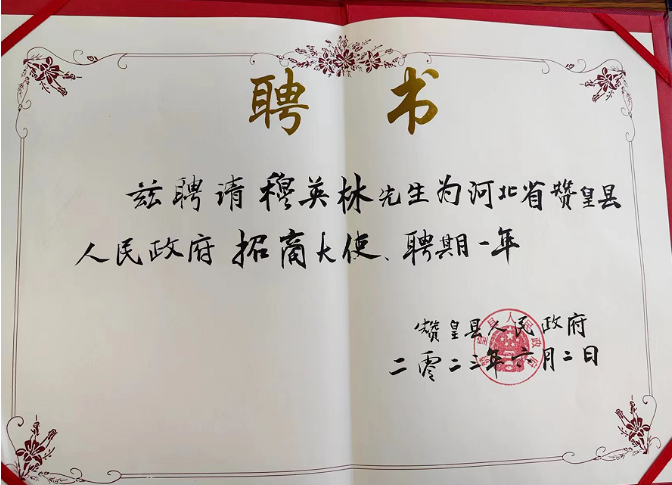 聘书
兹聘请穆英林先生为河北省赞皇县
人民政府招商大使、聘期一年
赞皇县人民政府
二零二三年六月二日